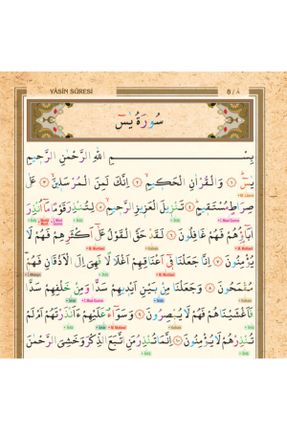 YÂSÎN SÛRESİ
سُورَةُ يٰسٓ
بِسْمِ اللهِ الرَّحْمٰنِ الرَّحِيمِ
يٰسٓ ﴿١﴾ وَالْقُرْاٰنِ الْحَكِيمِ ﴿٢﴾ اِنَّكَ لَمِنَ الْمُرْسَلِينَ ﴿٣﴾ عَلٰى
صِرَاطٍ مُسْتَقِيمٍ ﴿٤﴾ تَنْزِيلَ الْعَزِيزِ الرَّحِيمِ ﴿٥﴾ لِتُنْذِرَ قَوْمًا مَٓا اُنْذِرَ
اٰبَٓاؤُ۬هُمْ فَهُمْ غَافِلُونَ ﴿٦﴾ لَقَدْ حَقَّ الْقَوْلُ عَلٰٓى اَكْثَرِهِمْ فَهُمْ لَا
يُؤْمِنُونَ ﴿٧﴾ اِنَّا جَعَلْنَا فِٓي اَعْنَاقِهِمْ اَغْلَالًا فَهِيَ اِلَى الْاَذْقَانِ فَهُمْ
مُقْمَحُونَ ﴿٨﴾ وَجَعَلْنَا مِنْ بَيْنِ اَيْدِيهِمْ سَدًّا وَمِنْ خَلْفِهِمْ سَدًّا
فَاَغْشَيْنَاهُمْ فَهُمْ لَا يُبْصِرُونَ ﴿٩﴾ وَسَوَٓاءٌ عَلَيْهِمْ ءَاَنْذَرْتَهُمْ اَمْ لَمْ
تُنْذِرْهُمْ لَا يُؤْمِنُونَ ﴿١٠﴾ اِنَّمَا تُنْذِرُ مَنِ اتَّبَعَ الذِّكْرَ وَخَشِيَ الرَّحْمٰنَ